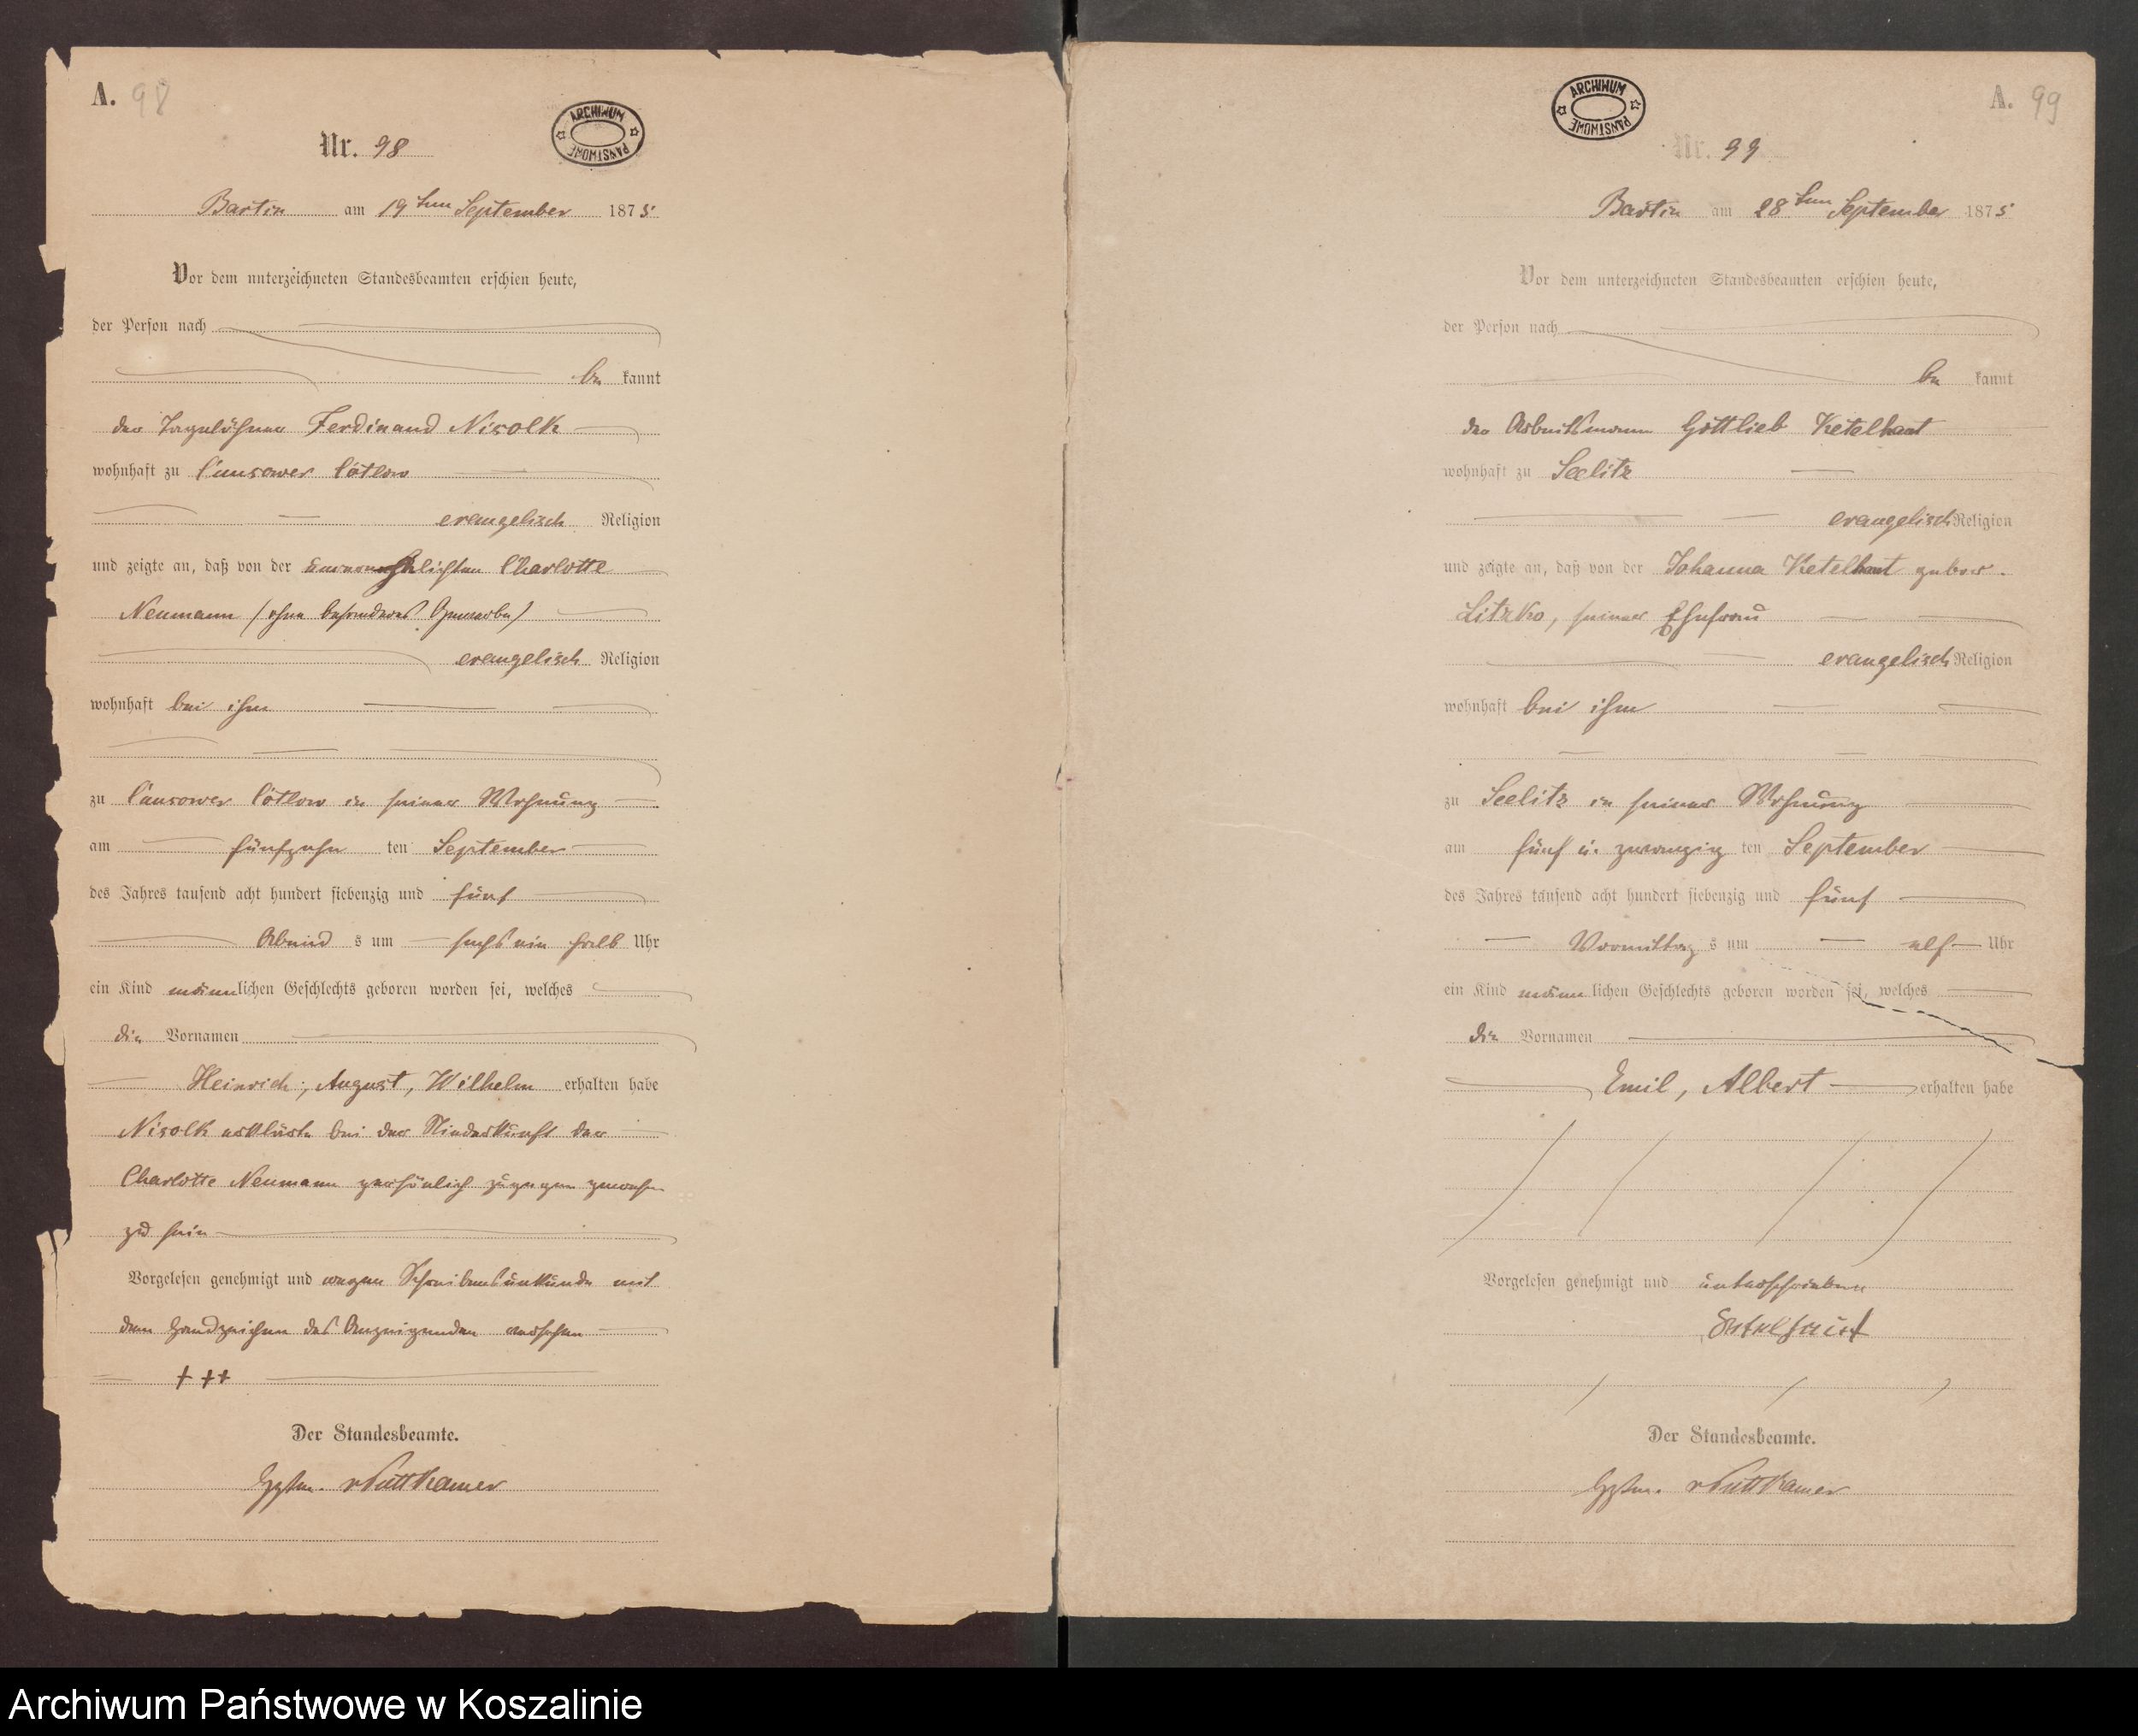 A. 98
ARCHIWUM PAŃSTWOWE
Nr. 98
Bartin am 19ten September 1875
Vor dem unterzeichneten Standesbeamten erschien heute,
der Person nach
be kannt
der Tagelöhner Ferdinand Nisolk
wohnhaft zu
evangelisch Religion
und zeigte an, daß von der unverehelichten Charlotte
Neumann (ohne besonderes Gewerbe)
evangelisch Religion
wohnhaft bei ihm
zu in seiner Wohnung
am fünfzehn ten September
des Jahres tausend acht hundert siebenzig und fünf
Abend s um sechs ein halb Uhr
ein Kind männlichen Geschlechts geboren worden sei, welches
die Vornamen
Heinrich, August, Wilhelm erhalten habe
Nisolk erklärte bei der Niederkunft der
Charlotte Neumann persönlich zugegen gewesen
zu sein
Vorgelesen genehmigt und wegen Schreibensunkunde mit
dem Handzeichen des Anzeigenden versehen
+++
Der Standesbeamte.
v Puttkamer
A. 99
ARCHIWUM PAŃSTWOWE
Nr. 99
Bartin am 28ten September 1875
Vor dem unterzeichneten Standesbeamten erschien heute,
der Person nach
be kannt
der Arbeitsmann Gottlieb Ketelhaut
wohnhaft zu Seelitz
evangelisch Religion
und zeigte an, daß von der Johanna Ketelhaut gebor.
Litzko, seiner Ehefrau
evangelisch Religion
wohnhaft bei ihm
zu Seelitz in seiner Wohnung
am fünf u. zwanzig ten September
des Jahres tausend acht hundert siebenzig und fünf
Vormittag s um elf Uhr
ein Kind männlichen Geschlechts geboren worden sei, welches
die Vornamen
Emil, Albert erhalten habe
Vorgelesen genehmigt und unterschrieben
Ketelhaut
Der Standesbeamte.
v Puttkamer
Archiwum Państwowe w Koszalinie